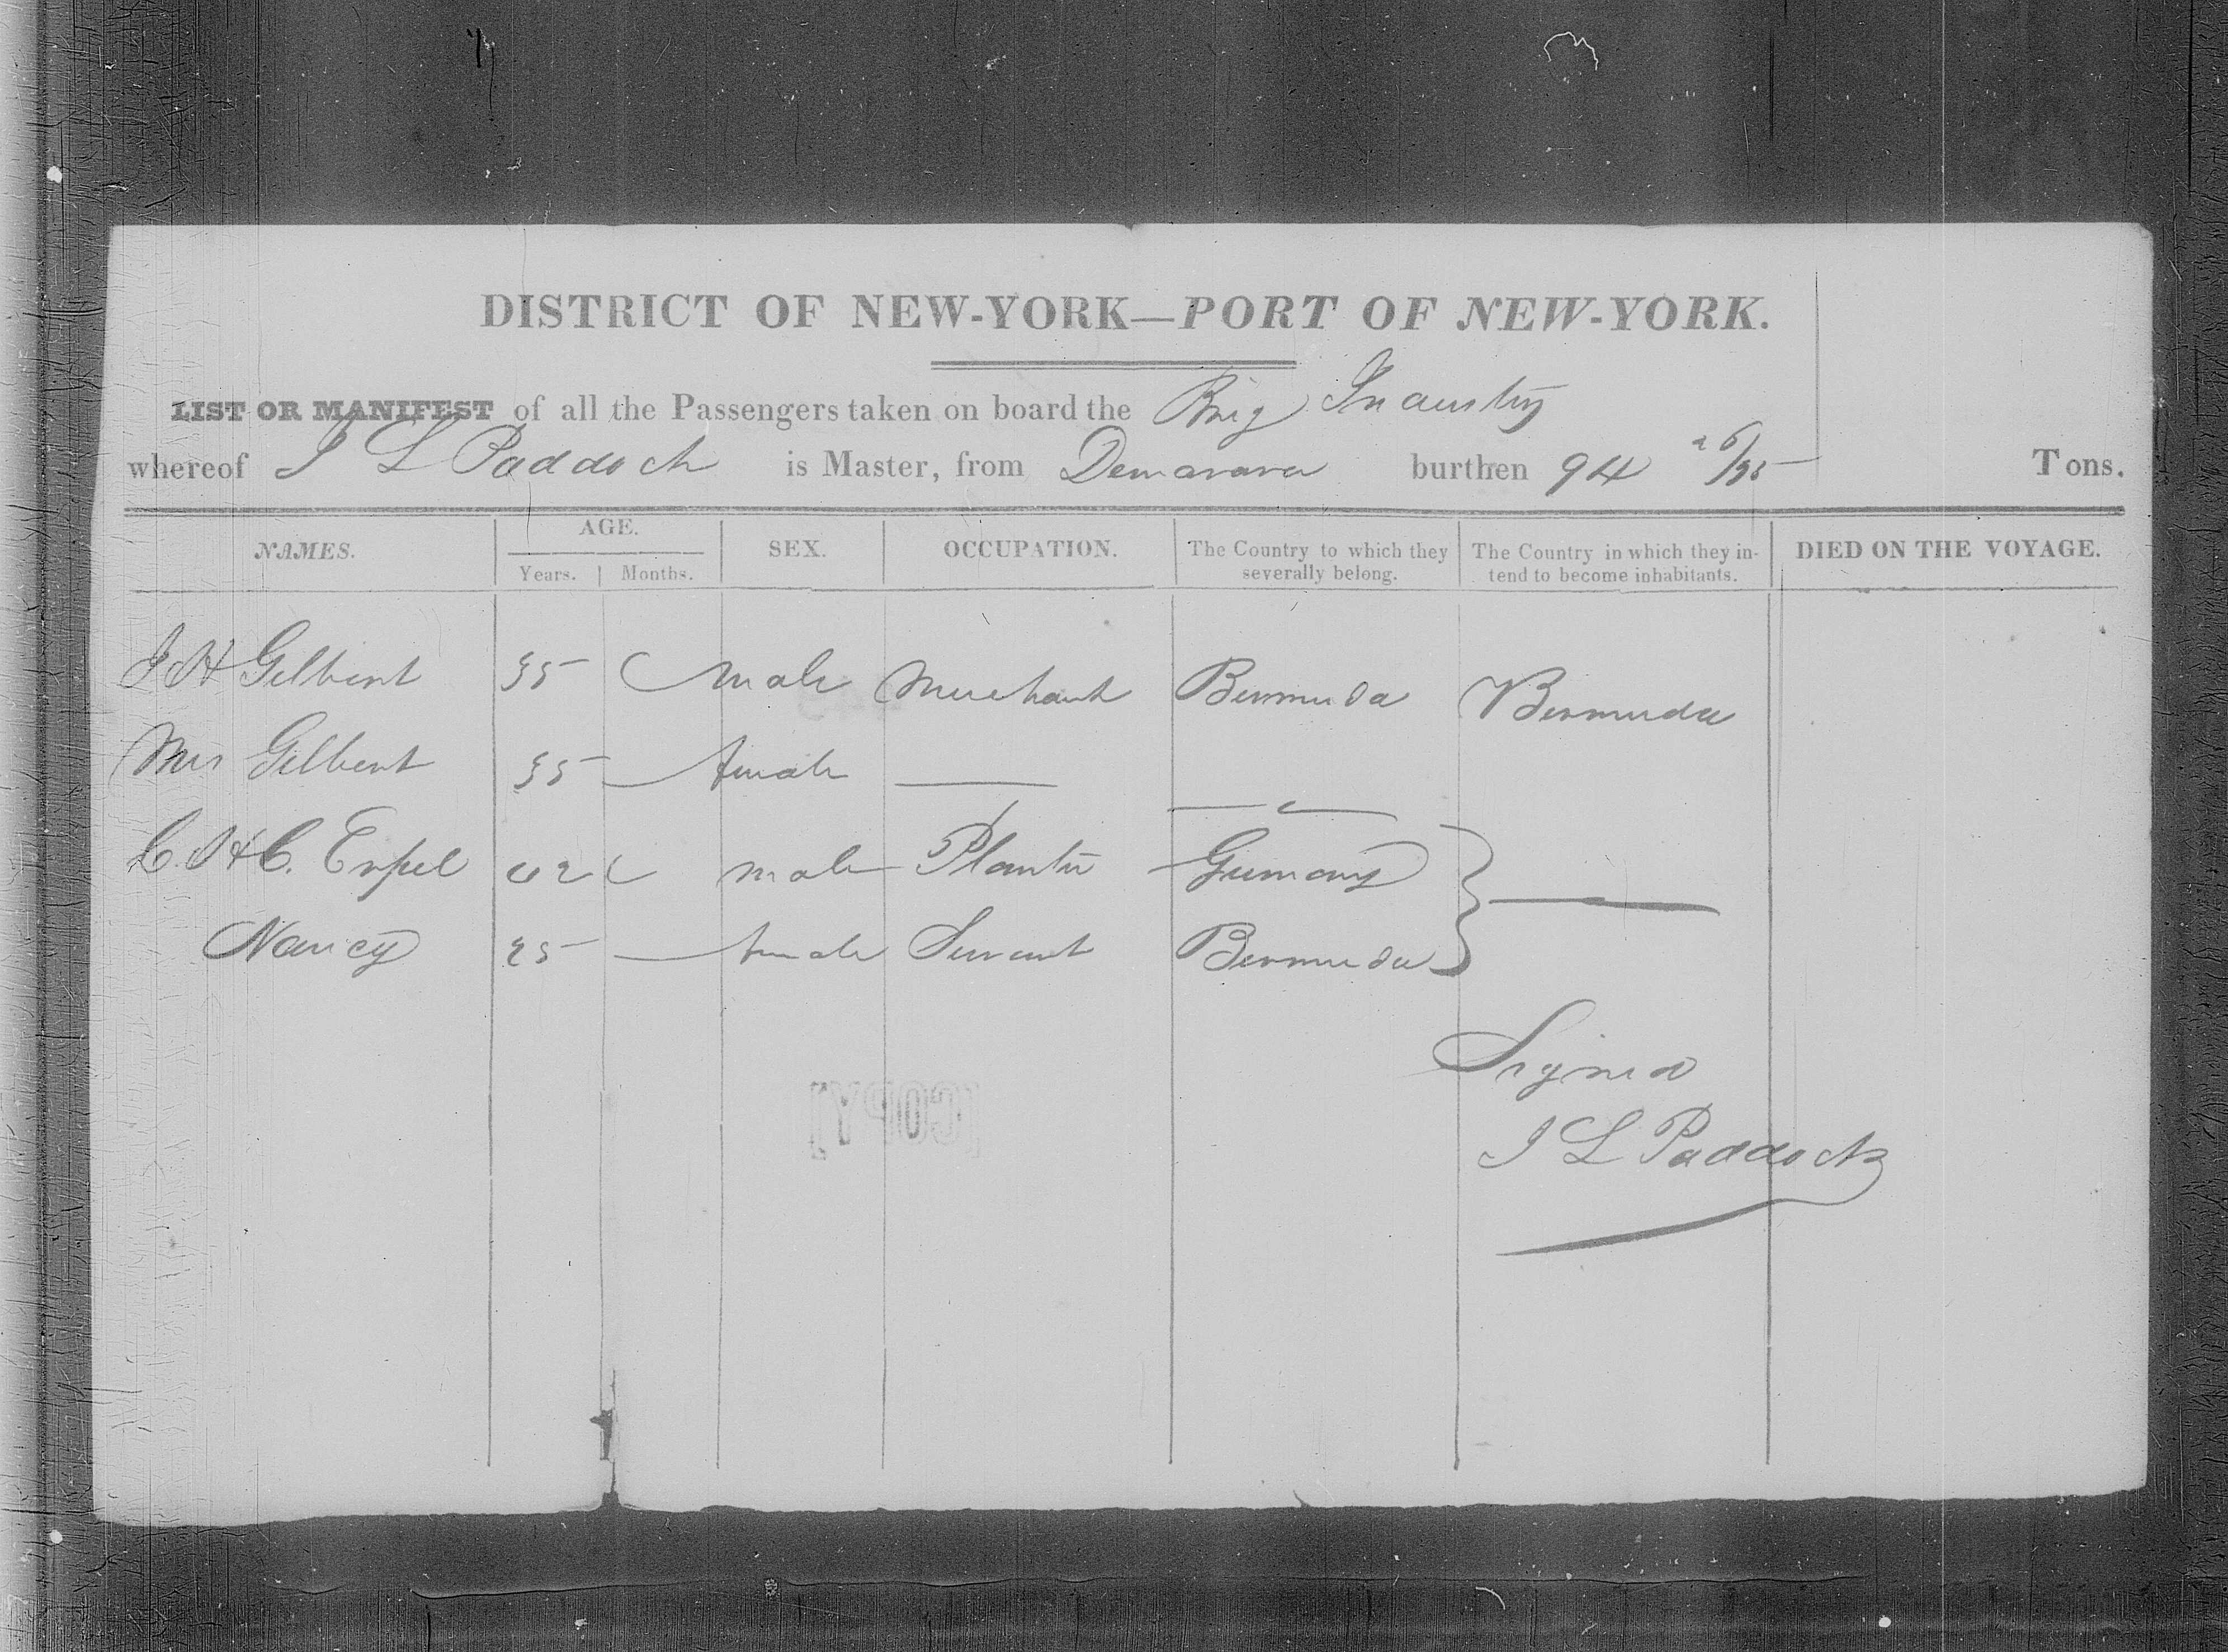 DISTRICT OF NEW-YORK—PORT OF NEW-YORK.
LIST OR MANIFEST of all the Passengers taken on board the Brig Industry
whereof J L Paddock is Master, from Demarara burthen 94 26/95 Tons.
NAMES. AGE. SEX. OCCUPATION. The Country to which they severally belong. The Country in which they intend to become inhabitants. DIED ON THE VOYAGE.
Years. Months.
J H Gilbert 35 male Merchant Bermuda Bermuda
Mrs Gilbert 35 — female — —
C. H. C. Erpel 42 male Planter Germany —
Nancy 25 — female Servant Bermuda
Signed
J L Paddock
[COPY]